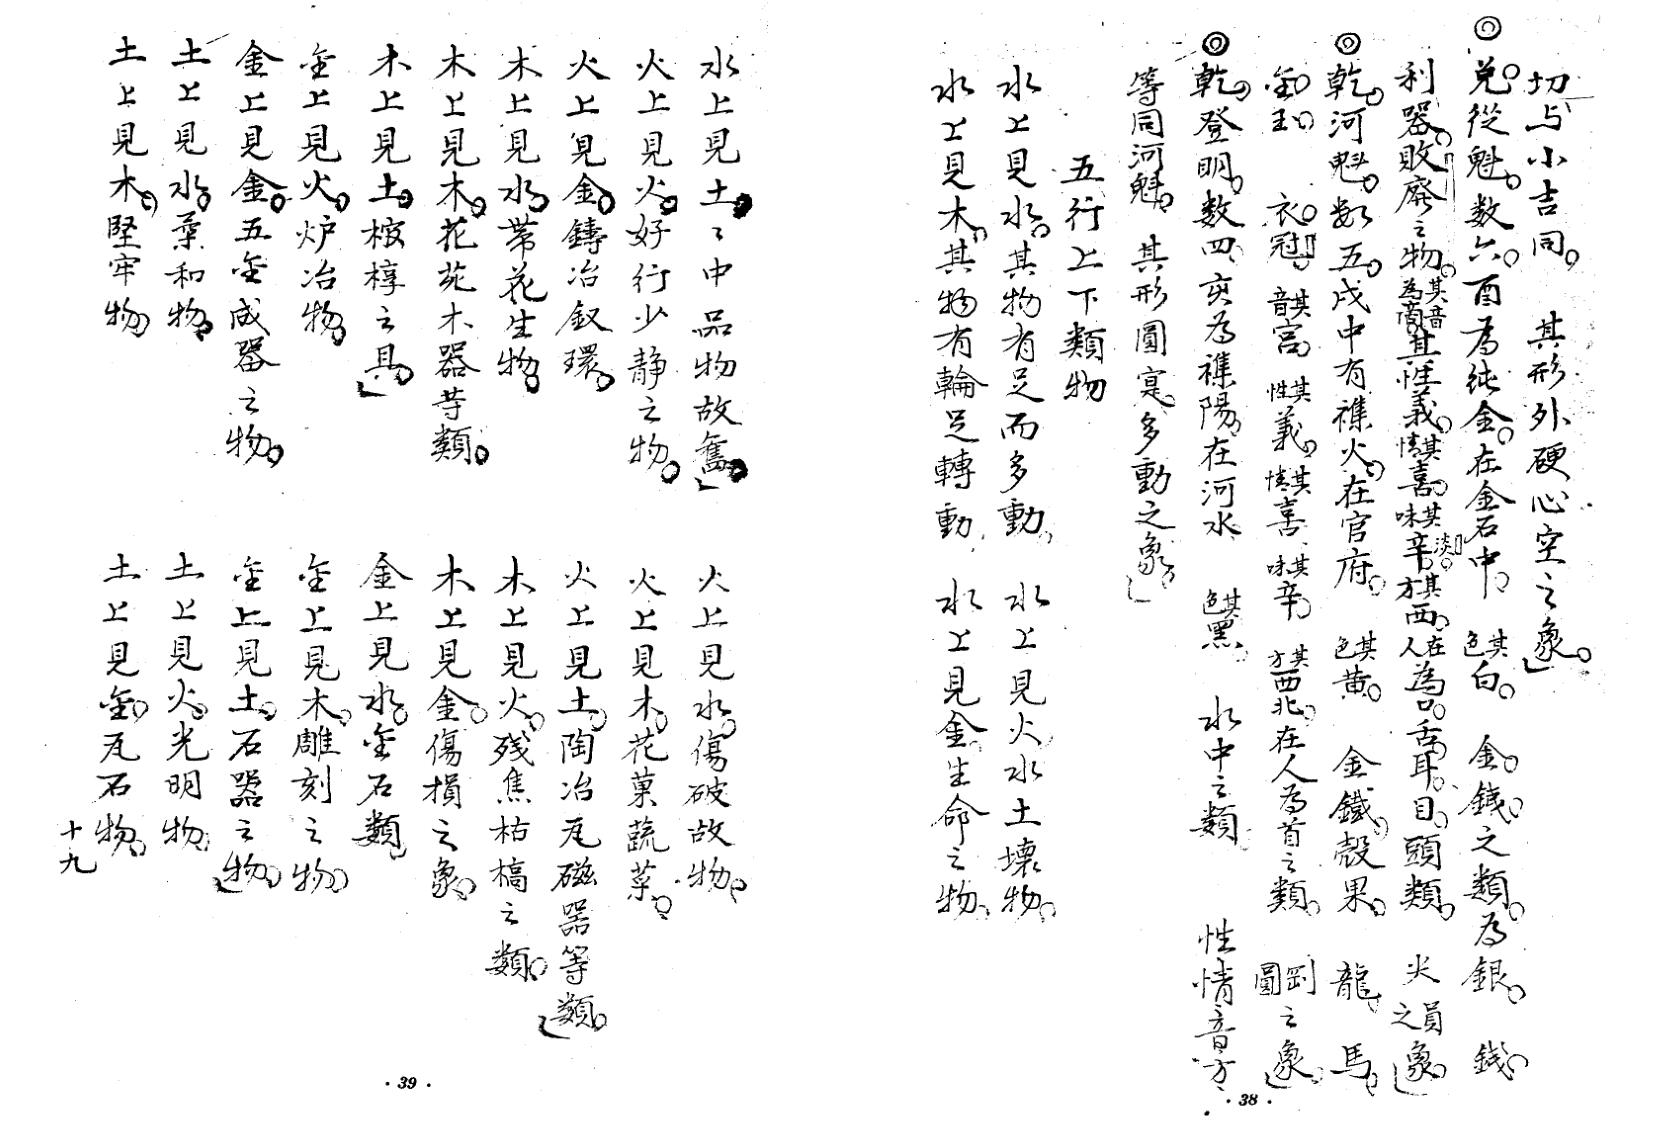 切与小吉同。　其形外硬心空之象。
◎兌從魁。数六。酉為純金。在金石中。其色白。　金銭之類。為銀。　銭。
利器。敗廢之物。其音為商。其性義。其情喜。其味辛。淡。其方西。在人為口。舌耳。目。頭類。　尖員之象。
◎乾。河魁。数五。戌中有襍火。在官府。　其色黄。　金鐵。殼果。　龍。馬。
金玉。　衣冠。　其音宮　其性義。其情喜　其味辛。其方西北。在人為首之類。　剛圓之象。
◎乾。登明。数四　亥為襍陽。在河水　其色黑。　水中之類　性情音方
等同河魁。　其形圓寔。多動之象。
五行上下類物
水上見水。其物有足而多動。　水上見火水土壞物。
水上見木。其物有輪足轉動　水上見金生命之物。
· 38 ·
水上見土。之中品物故舊。　火上見水。傷破故物。
火上見火。好行少静之物。　火上見木。花菓蔬菜。
火上見金。鑄冶釵環。　火上見土。陶冶瓦磁器等類。
木上見水。蒂花生物。　木上見火。残焦枯槁之類。
木上見木。花苑木器等類。　木上見金。傷損之象。
木上見土。棺椁之具。　金上見水。金石類。
金上見火。炉冶物。　金上見木。雕刻之物。
金上見金。五金成器之物。　金上見土。石器之物。
土上見水。柔和物。　土上見火。光明物。
土上見木。堅牢物。　土上見金。瓦石物。
十九
· 39 ·